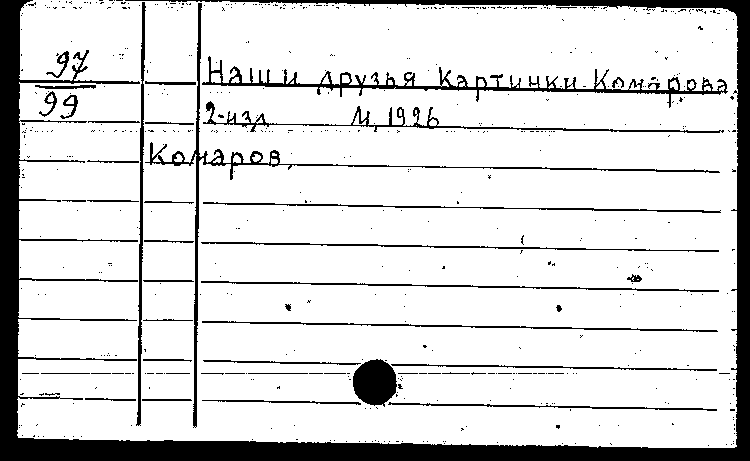 97
99
Наши друзья. Картинки Комарова.
2-изд М, 1926
Комаров.